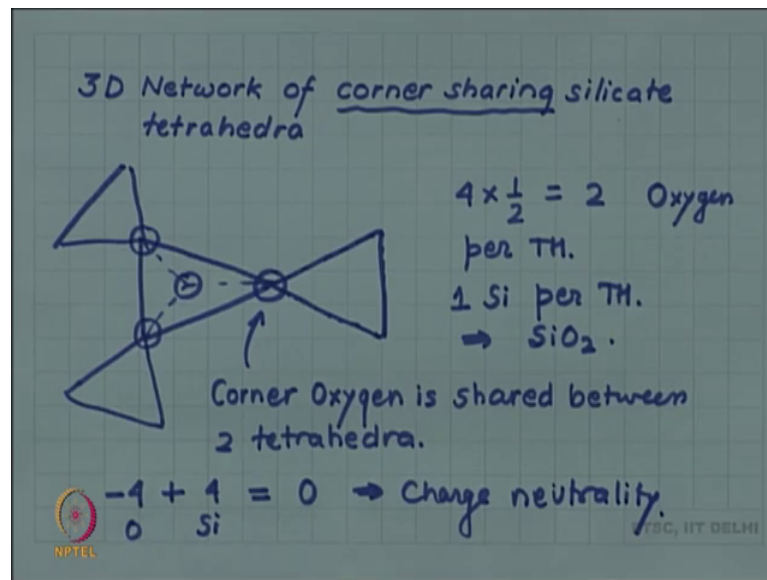 3D Network of corner sharing silicate
tetrahedra
4 × 1/2 = 2 Oxygen
per TH.
1 Si per TH.
➡ SiO₂.
Corner Oxygen is shared between
2 tetrahedra.
-4 + 4 = 0 ➡ Charge neutrality.
O Si
NPTEL
ETSC, IIT DELHI